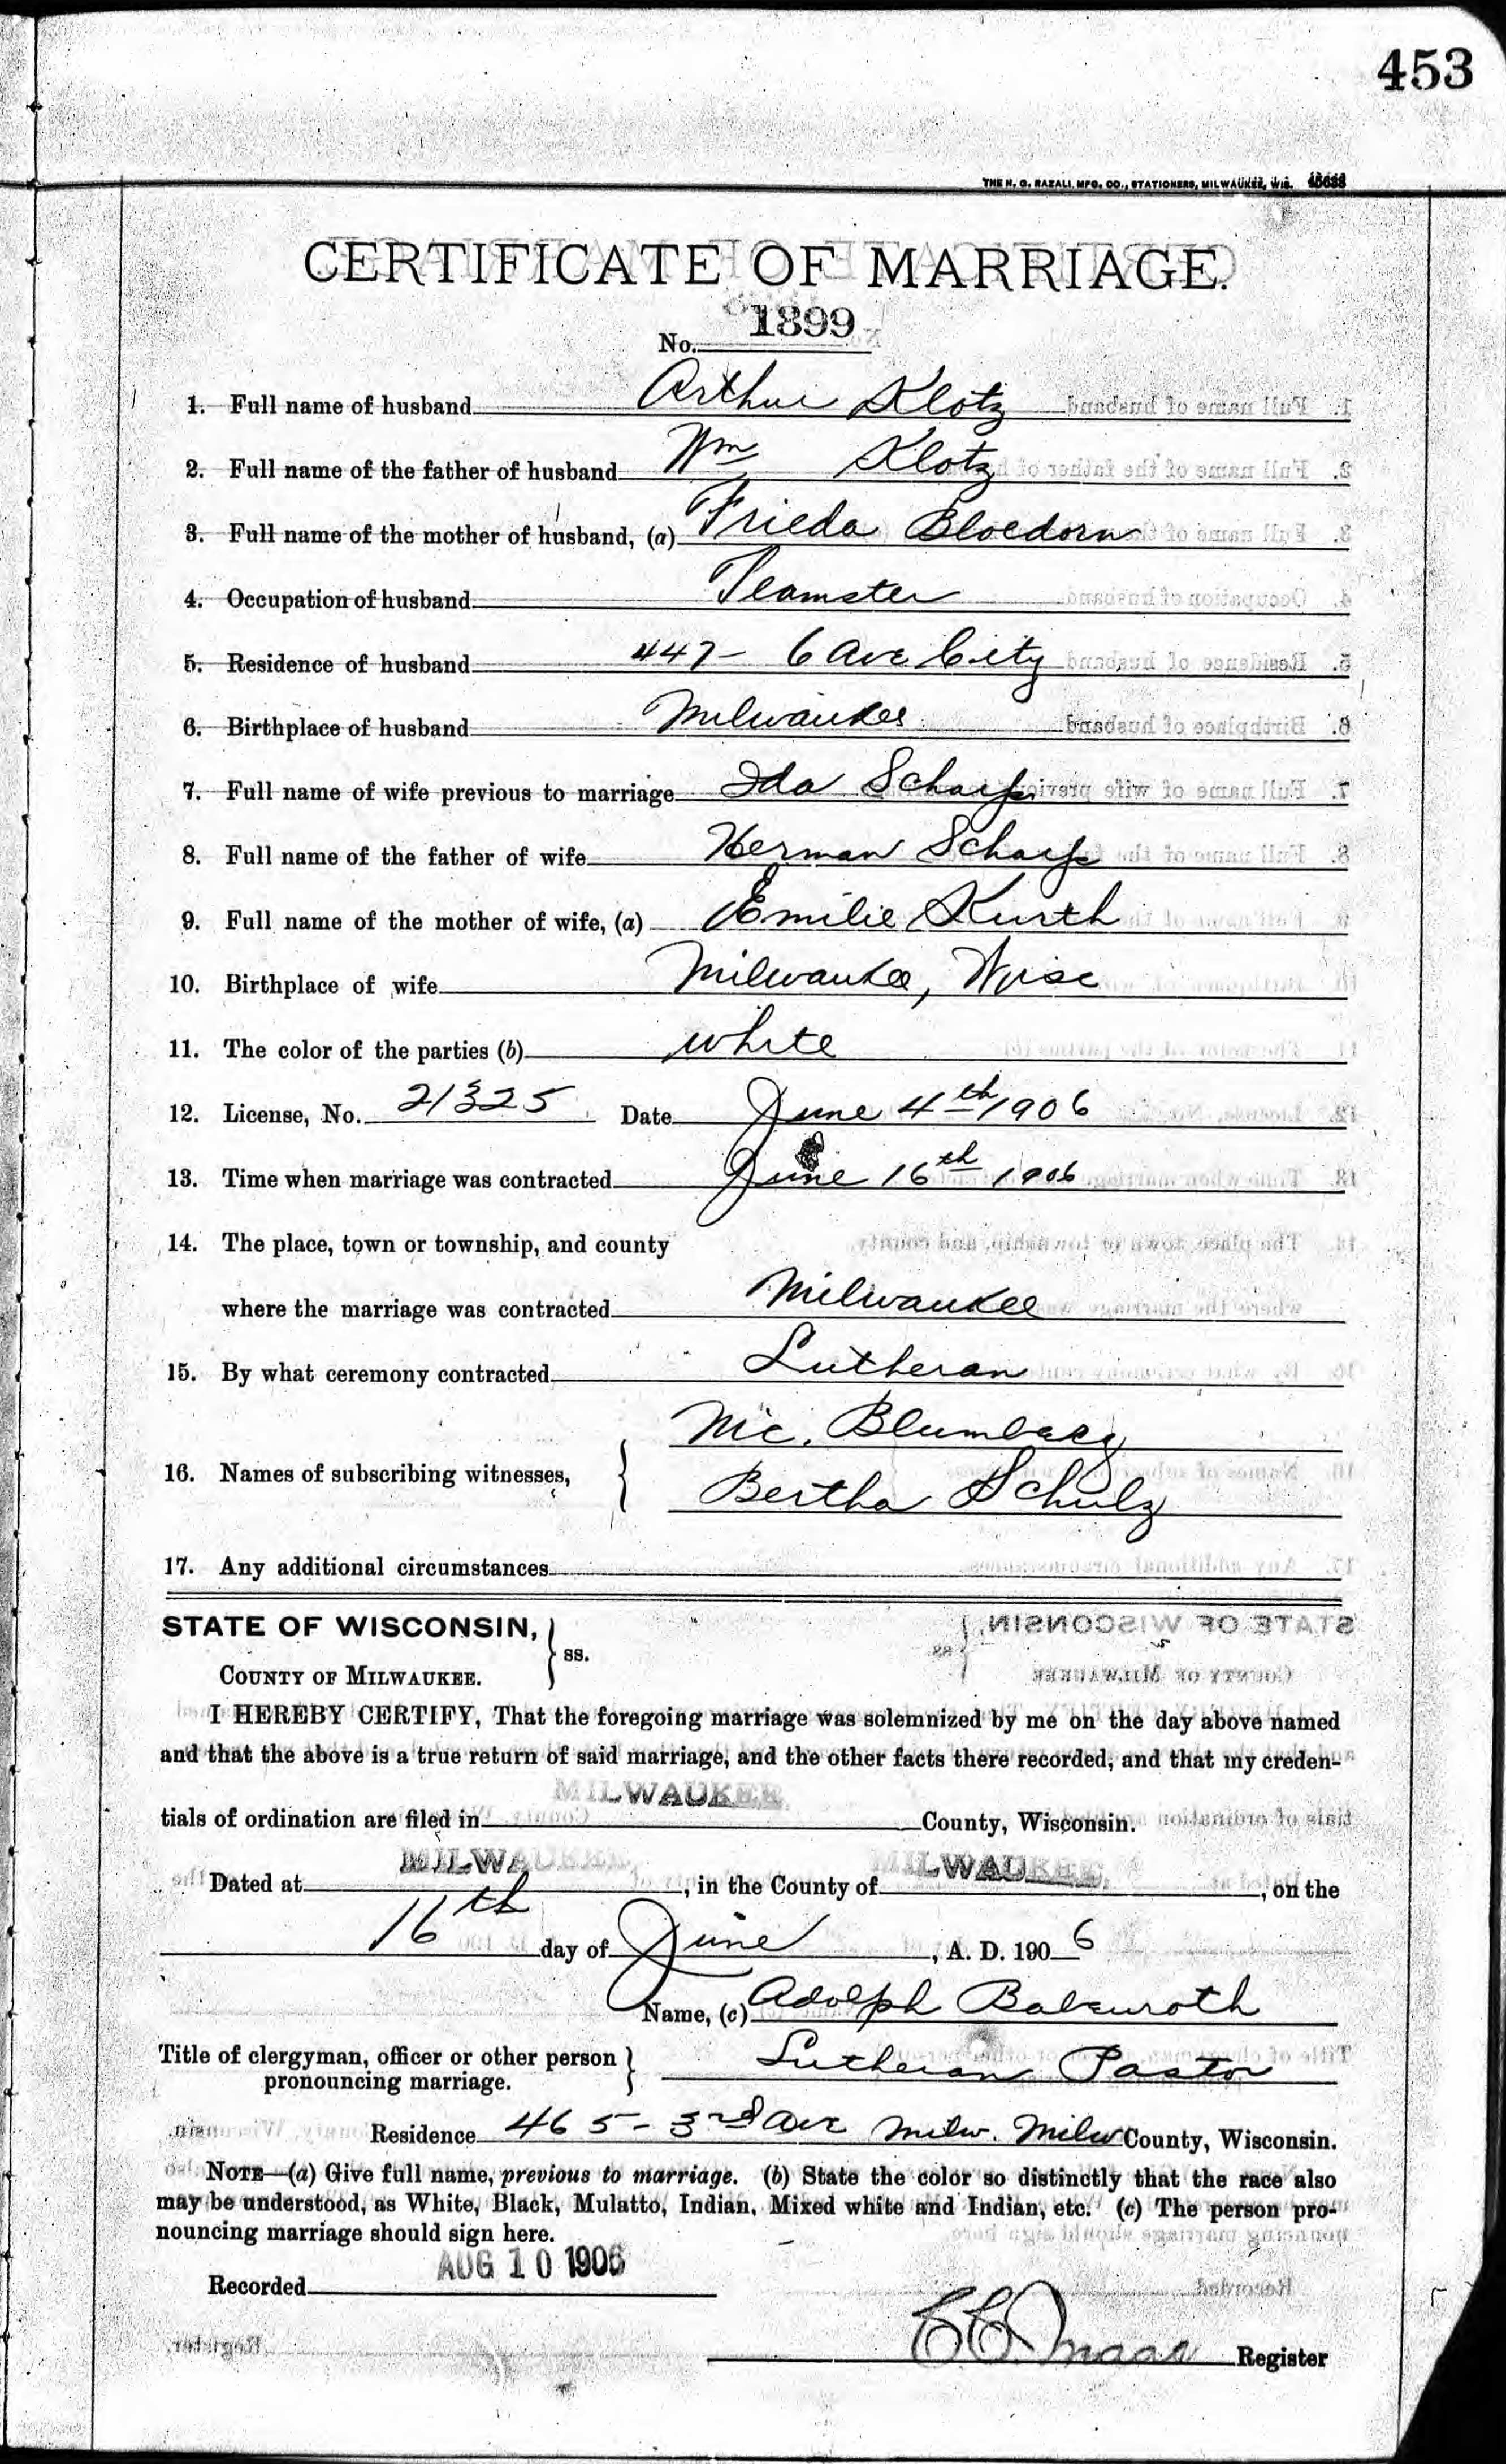 453
THE H. G. RAZALL MFG. CO., STATIONERS, MILWAUKEE, WIS.
CERTIFICATE OF MARRIAGE.
No. 1899
1. Full name of husband Arthur Klotz
2. Full name of the father of husband Wm Klotz
3. Full name of the mother of husband, (a) Frieda Bloedorn
4. Occupation of husband Teamster
5. Residence of husband 447- 6 Ave City
6. Birthplace of husband Milwaukee
7. Full name of wife previous to marriage Ida Scharf
8. Full name of the father of wife Herman Scharf
9. Full name of the mother of wife, (a) Emilie Kurth
10. Birthplace of wife Milwaukee, Wisc
11. The color of the parties (b) white
12. License, No. 21325 Date June 4th 1906
13. Time when marriage was contracted June 16th 1906
14. The place, town or township, and county
where the marriage was contracted Milwaukee
15. By what ceremony contracted Lutheran
Nic. Blumberg
16. Names of subscribing witnesses, }
Bertha Schulz
17. Any additional circumstances
STATE OF WISCONSIN, } ss.
COUNTY OF MILWAUKEE.
I HEREBY CERTIFY, That the foregoing marriage was solemnized by me on the day above named
and that the above is a true return of said marriage, and the other facts there recorded, and that my creden-
tials of ordination are filed in MILWAUKEE County, Wisconsin.
Dated at MILWAUKEE, in the County of MILWAUKEE, on the
16th day of June, A. D. 1906
Name, (c) Adolph
Title of clergyman, officer or other person } Lutheran Pastor
pronouncing marriage.
Residence 465- 3rd Ave Milw. Milw County, Wisconsin.
NOTE—(a) Give full name, previous to marriage. (b) State the color so distinctly that the race also
may be understood, as White, Black, Mulatto, Indian, Mixed white and Indian, etc. (c) The person pro-
nouncing marriage should sign here.
Recorded AUG 10 1906
C C Maas Register